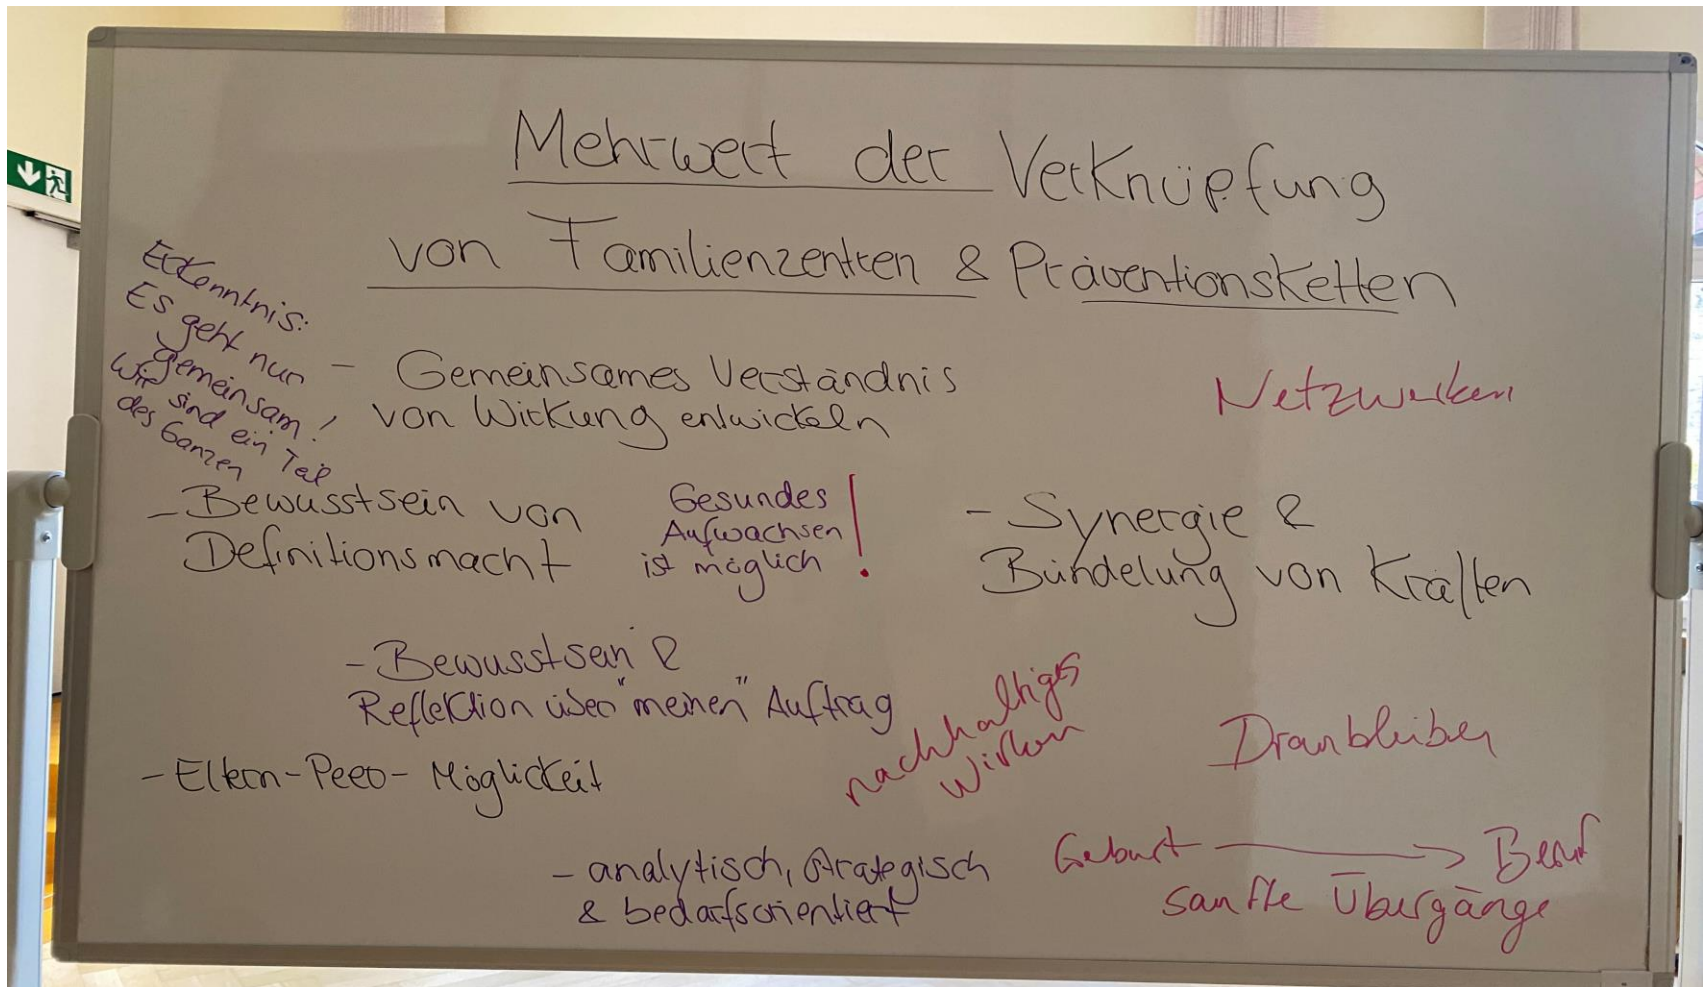 Mehrwert der Verknüpfung
von Familienzentren & Präventionsketten
Erkenntnis:
Es geht nur
gemeinsam!
Wir sind ein Teil
des Ganzen
- Gemeinsames Verständnis
von Wirkung entwickeln
Netzwerken
- Bewusstsein von
Definitionsmacht
Gesundes
Aufwachsen
ist möglich !
- Synergie &
Bündelung von Kräften
- Bewusstsein &
Reflektion über "meinen" Auftrag
nachhaltiges
Wirken
Dranbleiben
- Eltern-Peer-Möglickeit
- analytisch, strategisch
& bedarfsorientiert
Geburt → Beruf
sanfte Übergänge